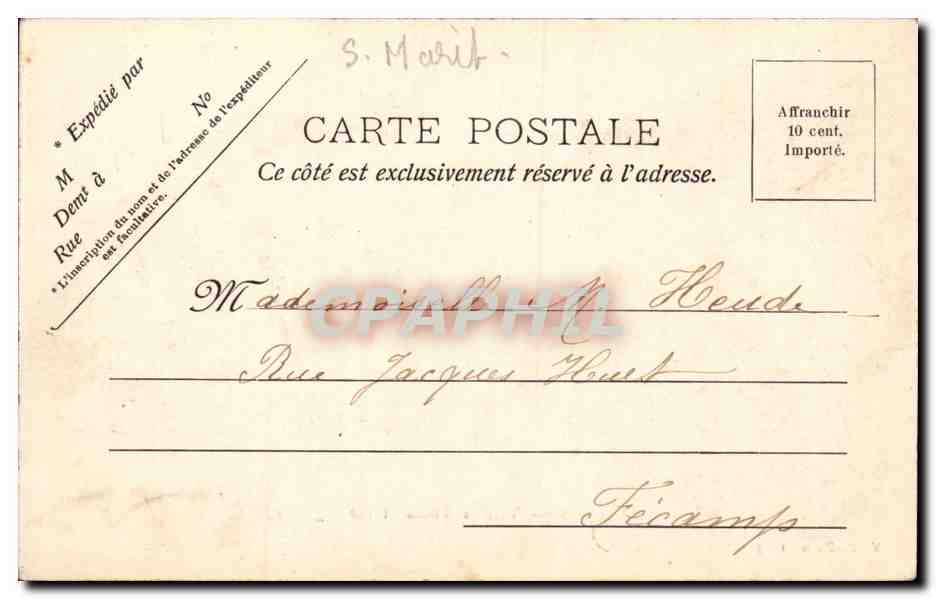 S. Marit.
* Expédié par
No
M
Demt à
Rue
* L'inscription du nom et de l'adresse de l'expéditeur
est facultative.
CARTE POSTALE
Ce côté est exclusivement réservé à l'adresse.
Affranchir
10 cent.
Importé.
Mademoiselle M Heude
Rue Jacques Huet
Fécamp
CPAPHIL